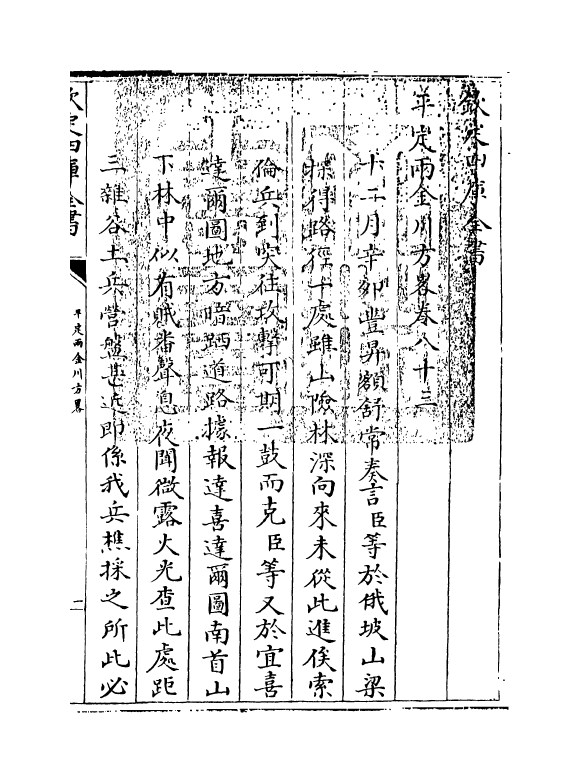 欽定四庫全書
平定兩金川方畧卷八十三
十二月辛卯豐昇額舒常奏言臣等於俄坡山梁
探得路徑十處雖山險林深向來未從此進俟索
倫兵到突徃攻擊可期一鼓而克臣等又於宜喜
達爾圖地方暗踩道路據報達喜達爾圖南首山
下林中似有賊番聲息夜間微露火光查此處距
三雜谷土兵營盤甚近即係我兵樵採之所此必
欽定四庫全書
平定兩金川方畧